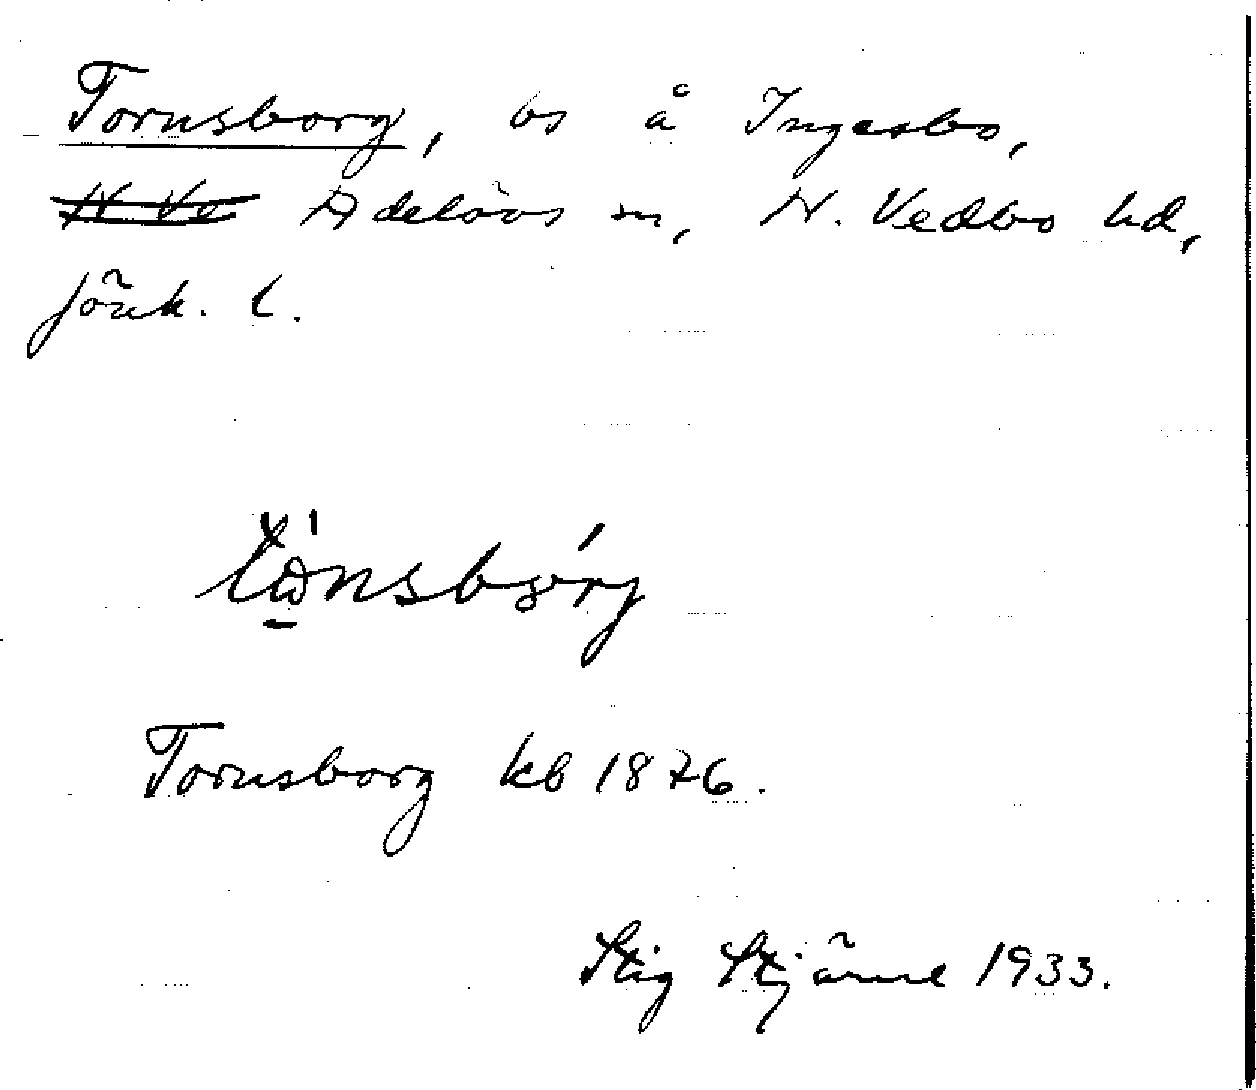 Tornsborg, bs å Ingersbo,
N Ve Adelövs sn, N. Vedbo hd,
Jönk. l.
Tornsborg kb 1876.
Stig Stjärne 1933.